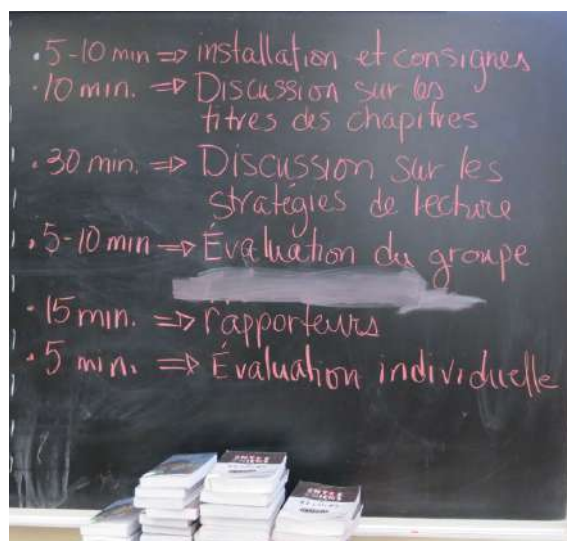 · 5-10 min => installation et consignes
· 10 min. => Discussion sur les
titres des chapitres
· 30 min. => Discussion sur les
stratégies de lecture
· 5-10 min => Évaluation du groupe
· 15 min. => rapporteurs
· 5 min. => Évaluation individuelle